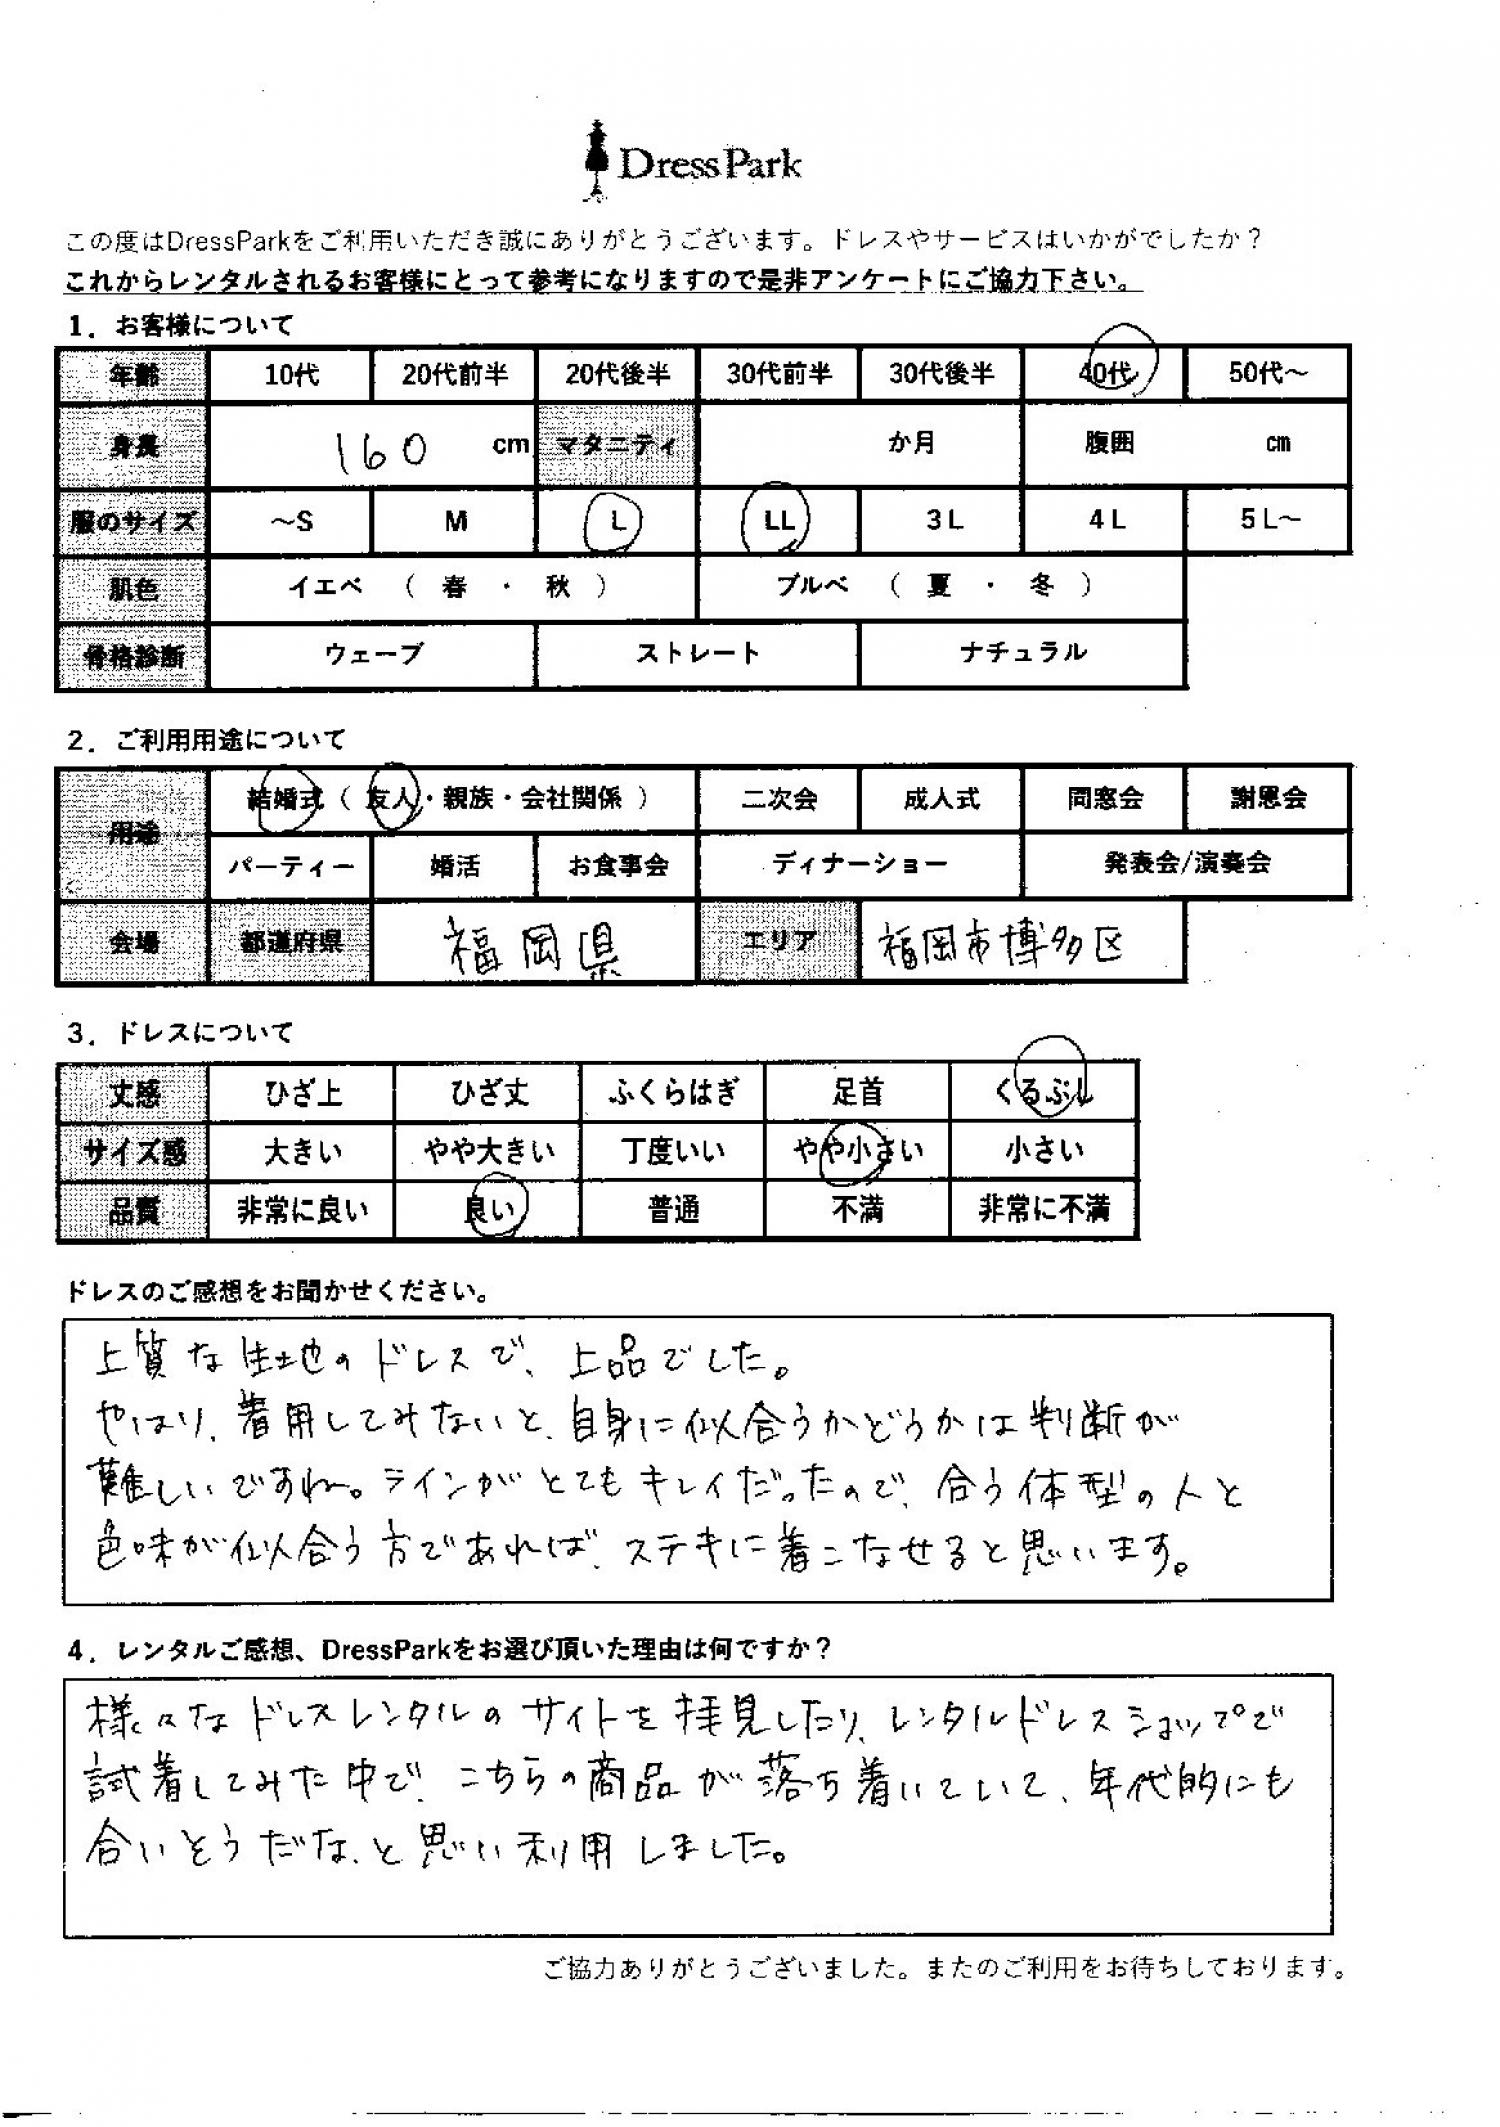 DressPark
この度はDressParkをご利用いただき誠にありがとうございます。ドレスやサービスはいかがでしたか？
これからレンタルされるお客様にとって参考になりますので是非アンケートにご協力下さい。
1．お客様について
年齢 10代 20代前半 20代後半 30代前半 30代後半 40代 50代～
身長 160 cm マタニティ か月 腹囲 cm
服のサイズ ～S M L LL 3L 4L 5L～
肌色 イエベ （ 春 ・ 秋 ） ブルベ （ 夏 ・ 冬 ）
骨格診断 ウェーブ ストレート ナチュラル
2．ご利用用途について
用途 結婚式（ 友人・親族・会社関係 ） 二次会 成人式 同窓会 謝恩会
パーティー 婚活 お食事会 ディナーショー 発表会/演奏会
会場 都道府県 福岡県 エリア 福岡市博多区
3．ドレスについて
丈感 ひざ上 ひざ丈 ふくらはぎ 足首 くるぶし
サイズ感 大きい やや大きい 丁度いい やや小さい 小さい
品質 非常に良い 良い 普通 不満 非常に不満
ドレスのご感想をお聞かせください。
上質な生地のドレスで、上品でした。
やはり、着用してみないと、自身に似合うかどうかは判断が
難しいですね。ラインがとてもキレイだったので、合う体型の人と
色味が似合う方であれば、ステキに着こなせると思います。
4．レンタルご感想、DressParkをお選び頂いた理由は何ですか？
様々なドレスレンタルのサイトを拝見したり、レンタルドレスショップで
試着してみた中で、こちらの商品が落ち着いていて、年代的にも
合いそうだな、と思い利用しました。
ご協力ありがとうございました。またのご利用をお待ちしております。